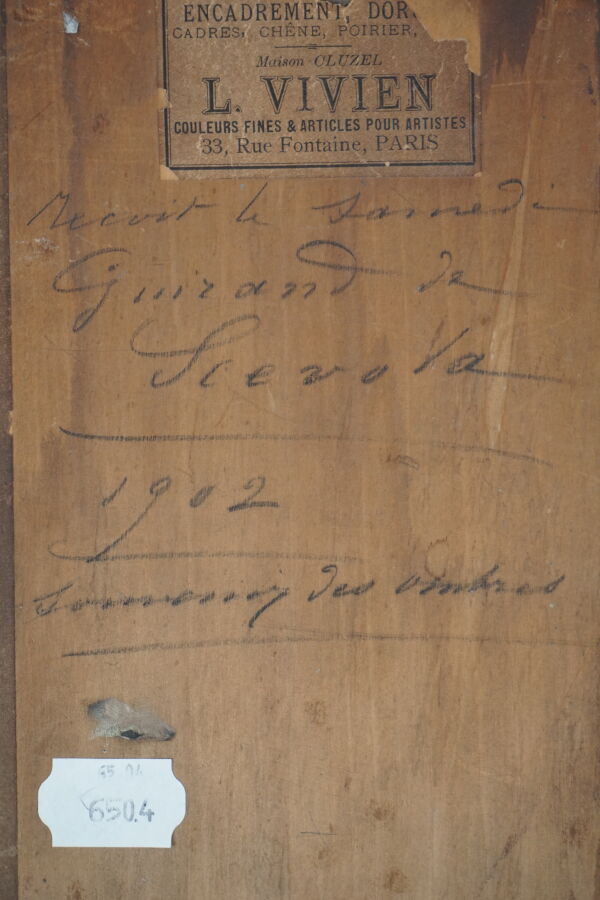 ENCADREMENT, DOR
CADRES, CHÊNE, POIRIER,
Maison CLUZEL
L. VIVIEN
COULEURS FINES & ARTICLES POUR ARTISTES
33, Rue Fontaine, PARIS
recoit le samedi
Guirand de
Scevola
1902
des ombres
65 04
650.4